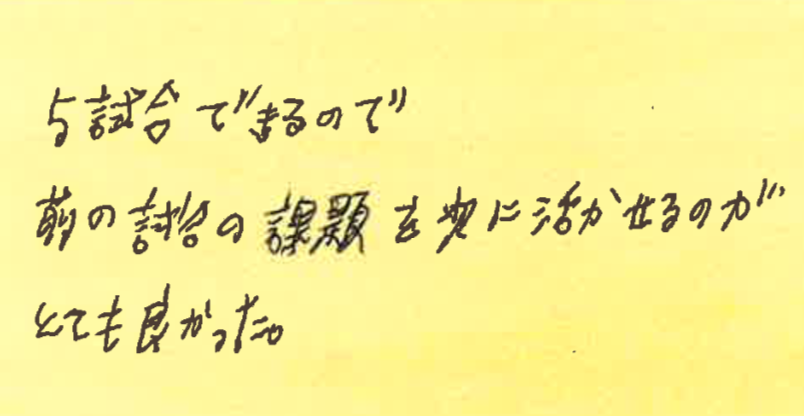 5試合できるので
前の試合の課題を次に活かせるのが
とても良かった。